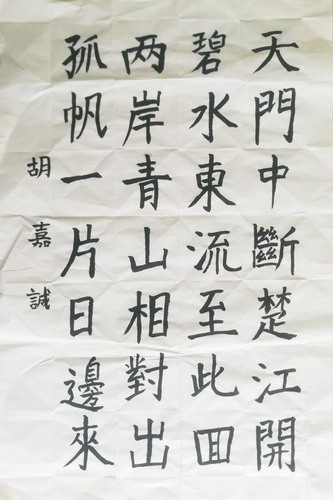 天門中斷楚江開
碧水東流至此回
两岸青山相對出
孤帆一片日邊來
胡嘉誠